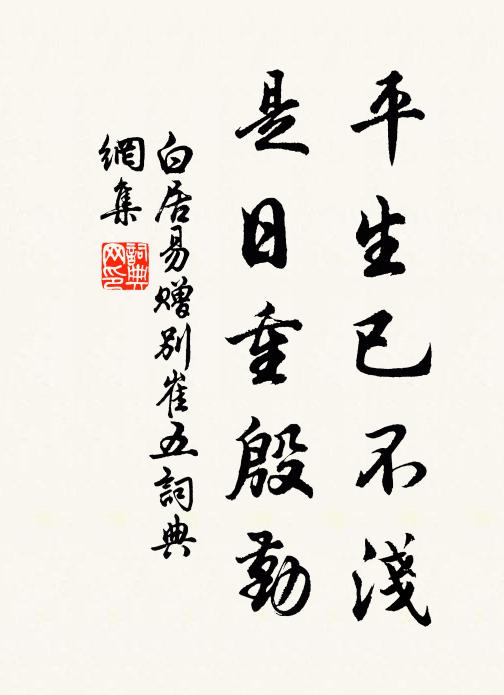 平生已不淺
是日重殷勤
白居易贈别崔五詞典
網集
詞典
网印